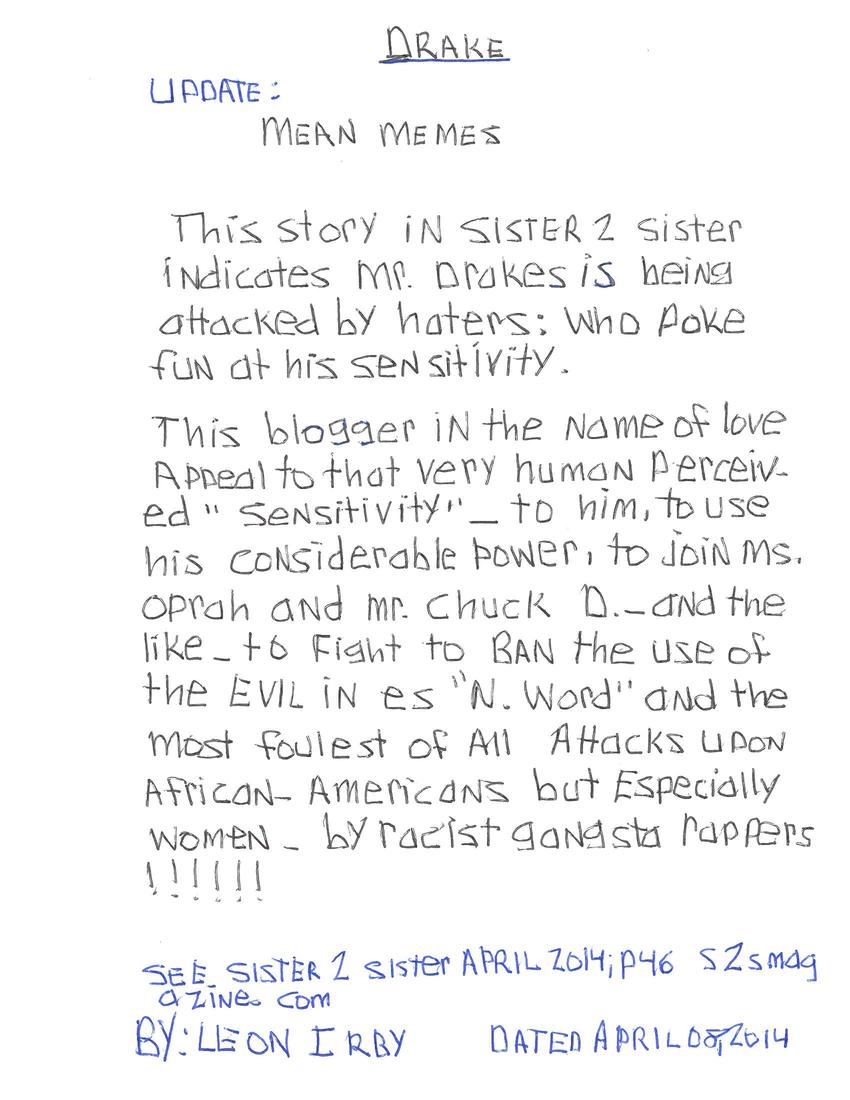 DRAKE
UPDATE:
MEAN MEMES
This story iN SISTER 2 sister
iNdicates Mr. Drakes is being
attacked by haters: who poke
fun at his seNsitivity.
This blogger iN the Name of love
Appeal to that very human Perceiv-
ed "seNsitivity"_ to him, to use
his coNsiderable power, to joiN ms.
oprah aNd mr. Chuck D._ aNd the
like_ to Fight to BAN the use of
the EVIL iN es "N. Word" aNd the
most foulest of All Attacks upoN
AfricaN- AmericaNs but Especially
womeN_ by racist gaNgsta rappers
!!!!!!
SEE SISTER 2 sister APRIL 2014; P46 S2smag
aziNe. com
BY: LEON IRBY DATED APRIL 08, 2014